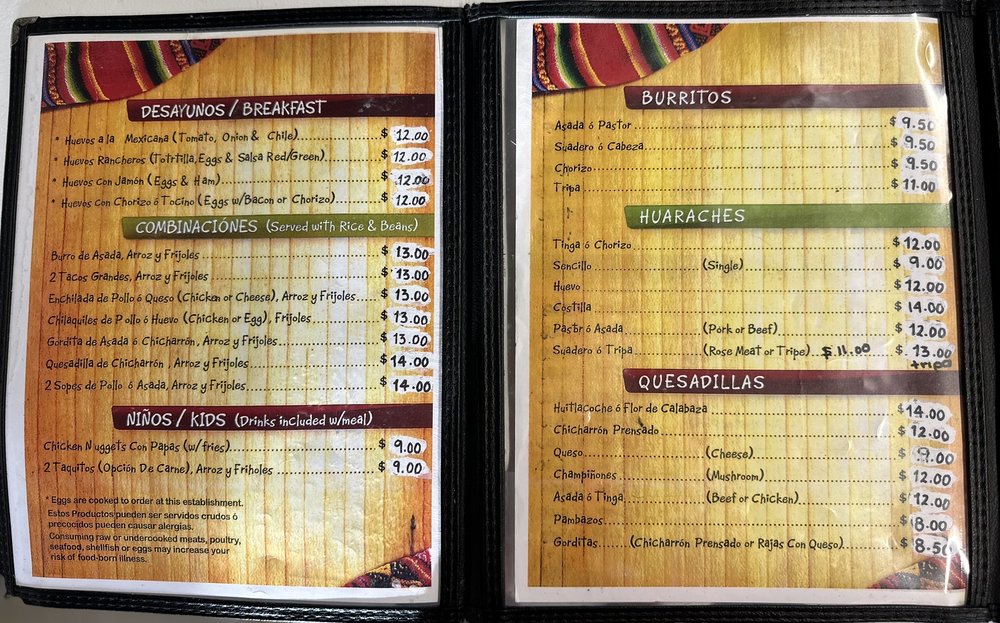 DESAYUNOS / BREAKFAST
* Huevos a la Mexicana (Tomato, Onion & Chile)..................$ 12.00
* Huevos Rancheros (Totrtilla,Eggs & Salsa Red/Green)..................$ 12.00
* Huevos Con Jamón (Eggs & Ham)..................$ 12.00
* Huevos con Chorizo ó Tocino (Eggs w/Bacon or Chorizo)..................$ 12.00
COMBINACIÓNES (Served with Rice & Beans)
Burro de Asada, Arroz y Frijoles..................$ 13.00
2 Tacos Grandes, Arroz y Frijoles..................$ 13.00
Enchilada de Pollo ó Queso (Chicken or Cheese), Arroz y Frijoles.....$ 13.00
Chilaquiles de Pollo ó Huevo (Chicken or Egg), Frijoles..................$ 13.00
Gordita de Asada ó Chicharrón, Arroz y Frijoles..................$ 13.00
Quesadilla de Chicharrón, Arroz y Frijoles..................$ 14.00
2 Sopes de Pollo ó Asada, Arroz y Frijoles..................$ 14.00
NIÑOS / KIDS (Drinks included w/meal)
Chicken Nuggets Con Papas (w/fries)..................$ 9.00
2 Taquitos (Opción De Carne), Arroz y Friholes..................$ 9.00
* Eggs are cooked to order at this establishment.
Estos Productos pueden ser servidos crudos ó
precocidos pueden causar alergias.
Consuming raw or undercooked meats, poultry,
seafood, shellfish or eggs may increase your
risk of food-born illness.
BURRITOS
Asada ó Pastor..................$ 9.50
Suadero ó Cabeza..................$ 9.50
Chorizo..................$ 9.50
Tripa..................$ 11.00
HUARACHES
Tinga ó Chorizo..................$ 12.00
Sencillo..................(Single)..................$ 9.00
Huevo..................$ 12.00
Costilla..................$ 14.00
Pastor ó Asada..................(Pork or Beef)..................$ 12.00
Suadero ó Tripa..................(Rose Meat or Tripe)..$ 11.00.....$ 13.00
tripa
QUESADILLAS
Huitlacoche ó Flor de Calabaza..................$ 14.00
Chicharrón Prensado..................$ 12.00
Queso..................(Cheese)..................$ 9.00
Champiñones..................(Mushroom)..................$ 12.00
Asada ó Tinga..................(Beef or Chicken)..................$ 12.00
Pambazos..................$ 8.00
Gorditas........(Chicharrón Prensado or Rajas Con Queso)..........$ 8.50